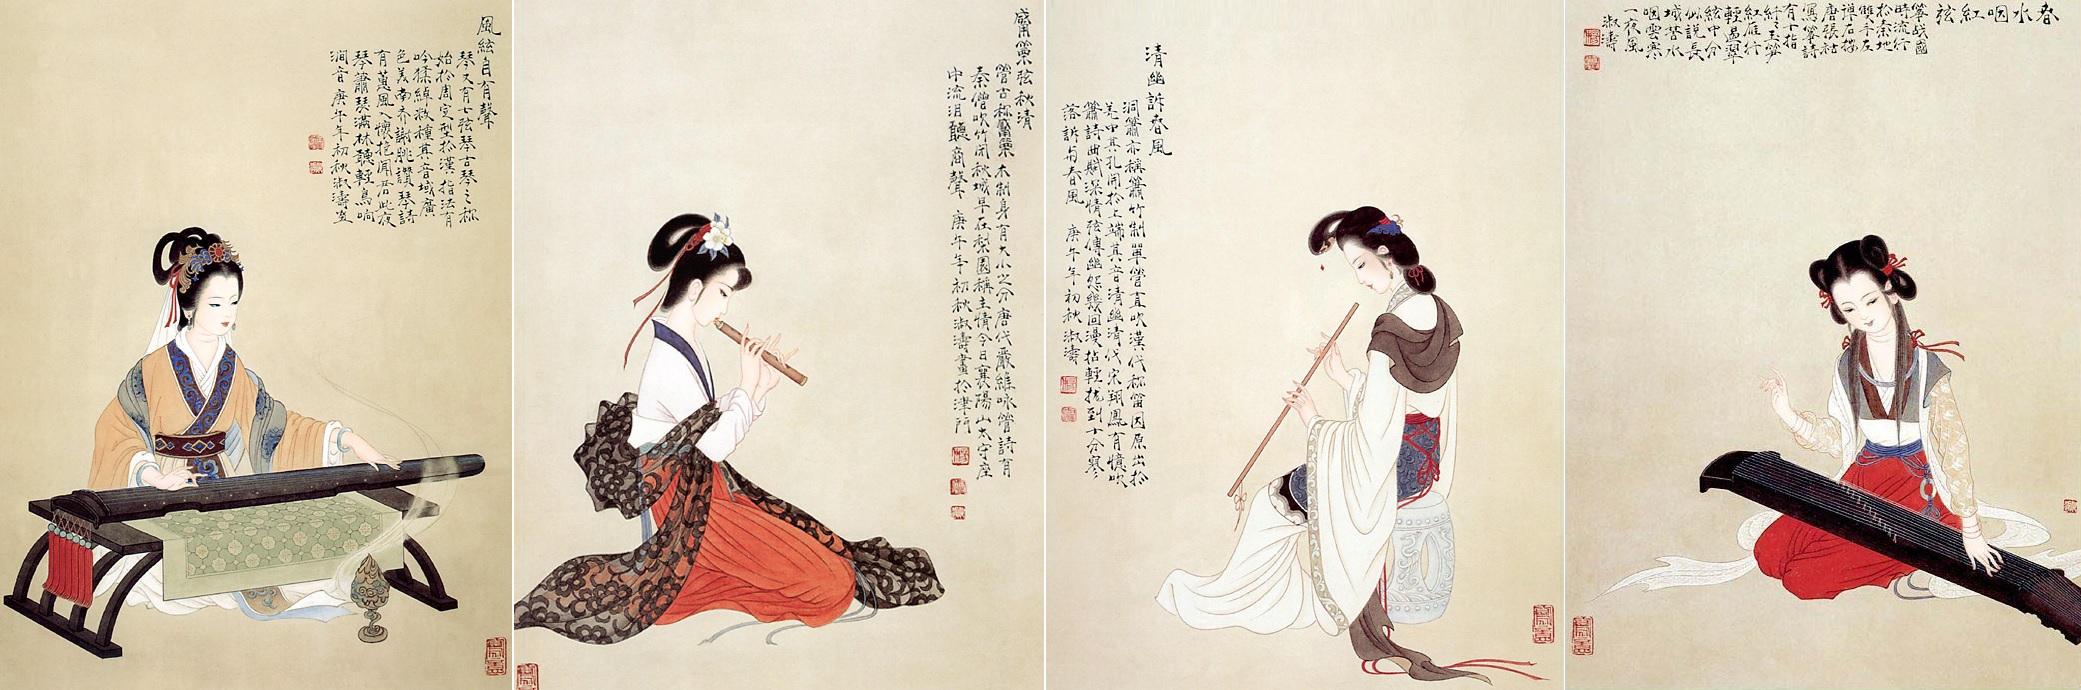 風絃自有聲
琴又有七弦琴古琴之称
始於周定型於漢指法有
吟揉綽數種其音域廣
色美南齐謝朓讚琴詩
有蕙風入懷抱聞君此夜
琴蕭瑟滿林聽輕鳥响
澗音庚午年初秋淑濤畫
觱篥弦秋清
管古称觱篥木制身有大小之分唐代嚴維咏管詩有
秦僧吹竹閉秋城早在梨園稱主情今日襄陽山太守座
中流泪聽商聲 庚午年初秋淑濤畫於津門
清幽訴春風
洞簫亦稱簫竹制單管直吹漢代称笛因原出於
羌中其孔開於上端其音清幽清代宋翔鳳有憤吹
簫詩曲賦深情弦傳幽怨幾回漫拈輕挑到十分寒冷
落訴与春風 庚午年初秋淑濤
春水咽紅弦
箏战國
時流行
於秦地
雙手左
右撥
唐張祜
寫箏詩
有十指
纤纤玉笋
紅雁行
輕遏翠
弦中分
似説長
城營水
咽雲寒
一夜風
淑濤